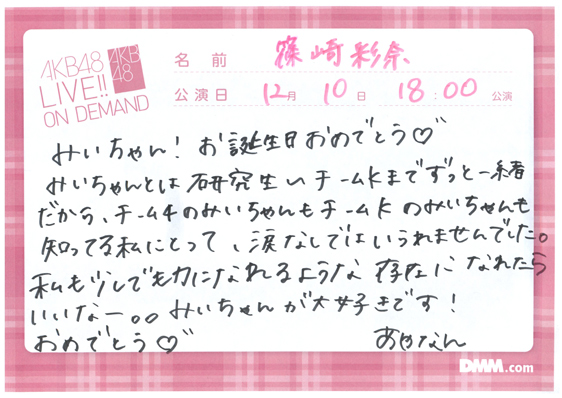 AKB48
LIVE!!
ON DEMAND
AKB
48
名前 篠崎彩奈
公演日 12月 10日 18:00 公演
みいちゃん！お誕生日おめでとう♡
みいちゃんとは研究生〜チームKまでずっと一緒
だから、チーム4のみいちゃんもチームKのみいちゃんも
知ってる私にとって、涙なしではいられませんでした。
私も少しでも力になれるような存在になれたら
いいなー。。みいちゃんが大好きです！
おめでとう♡ あやなん
DMM.com